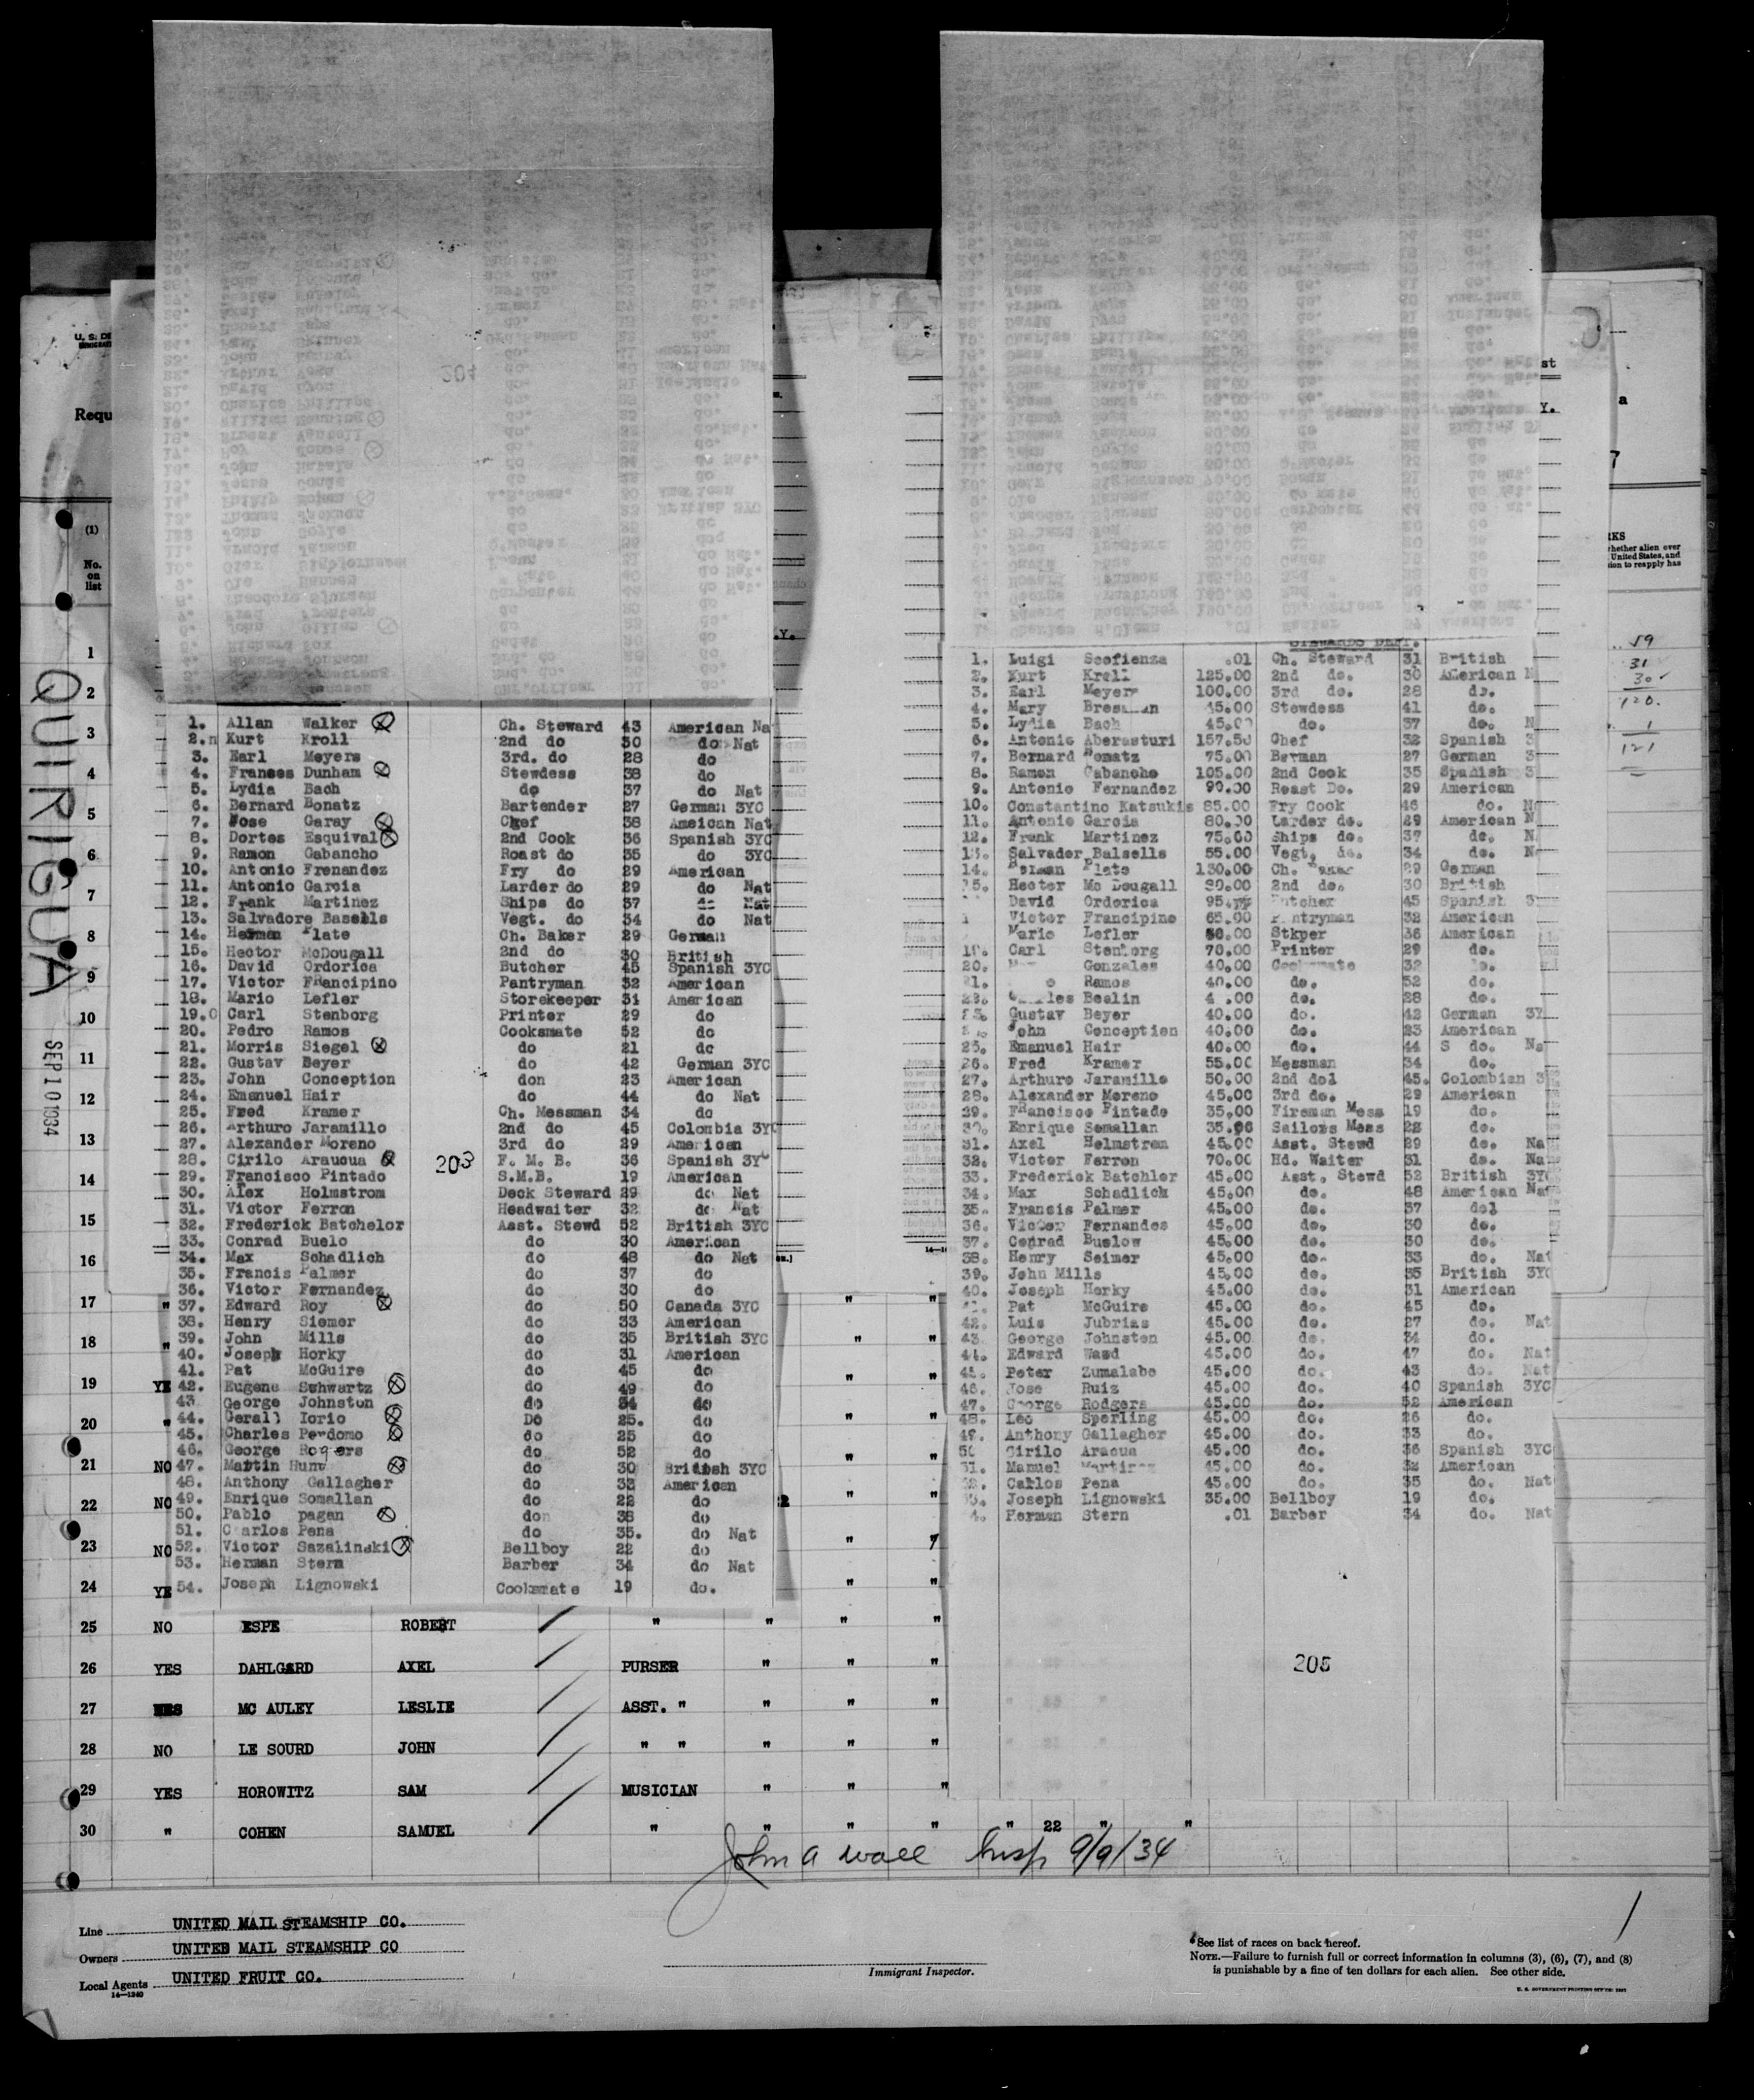 U. S. DE
Requ
(1)
No.
on
list
QUIRIGUA
SEP 10 1934
st
Y.
a
7
RKS
whether alien over
United States, and
sion to reapply has
59
31
30
120.
1
121
204
1. Allan Walker Ch. Steward 43 American Na
2. Kurt Kroll 2nd do 30 do Nat
3. Earl Meyers 3rd. do 28 do
4. Franses Dunham Stewdess 38 do
5. Lydia Bach do 37 do Nat
6. Bernard Bonatz Bartender 27 German 3YC
7. Jose Garay Chef 38 Ameican Nat
8. Dortes Esquival 2nd Cook 36 Spanish 3YC
9. Ramon Gabancho Roast do 35 do 3YC
10. Antonio Frenandez Fry do 29 American
11. Antonio Garcia Larder do 29 do Nat
12. Frank Martinez Ships do 37 do Nat
13. Salvadore Basells Vegt. do 34 do Nat
14. Herman Plate Ch. Baker 29 German
15. Hector McDougall 2nd do 30 British
16. David Ordorica Butcher 45 Spanish 3YC
17. Victor FRancipino Pantryman 32 American
18. Mario Lefler Storekeeper 31 American
19. Carl Stenborg Printer 29 do
20. Pedro Ramos Cooksmate 52 do
21. Morris Siegel do 21 do
22. Gustav Beyer do 42 German 3YC
23. John Conception don 23 American
24. Emanuel Hair do 44 do Nat
25. Fred Kramer Ch. Messman 34 do
26. Arthuro Jaramillo 2nd do 45 Colombia 3YC
27. Alexander Moreno 3rd do 29 American
28. Cirilo Araucua 203 F. M. B. 36 Spanish 3Y
29. Francisco Pintado S.M.B. 19 American
30. Alex Holmstrom Deck Steward 29 do Nat
31. Victor Ferron Headwaiter 32 do Nat
32. Frederick Batchelor Asst. Stewd 52 British 3YC
33. Conrad Buelo do 30 American
34. Max Schadlich do 48 do Nat
35. Francis Palmer do 37 do
36. Victor Fernandez do 30 do
37. Edward Roy do 50 Canada 3YC
38. Henry Siemer do 33 American
39. John Mills do 35 British 3YC
40. Joseph Horky do 31 American
41. Pat McGuire do 45 do
42. Eugene Schwartz do 49 do
43. George Johnston do 34 do
44. Gerald Iorio Do 25. do
45. Charles Perdomo do 25 do
46. George Rogers do 52 do
47. Martin Hunt do 30 British 3YC
48. Anthony Gallagher do 33 American
49. Enrique Somallan do 22 do
50. Pablo pagan don 38 do
51. Carlos Pena do 35. do Nat
52. Victor Sazalinski Bellboy 22 do
53. Herman Stern Barber 34 do Nat
54. Joseph Lignowski Cooksmate 19 do.
STEWARDS DEPT.
1. Luigi Scofienza .01 Ch. Steward 31 British
2. Kurt Kroll 125.00 2nd do. 30 American N
3. Earl Meyers 100.00 3rd do. 28 do.
4. Mary 45.00 Stewdess 41 do.
5. Lydia Bach 45.00 do. 37 do. N
6. Antonio Aberasturi 157.50 Chef 32 Spanish 3
7. Bernard Bomatz 75.00 Barman 27 German 3
8. Ramon Cabancho 105.00 2nd Cook 35 Spanish 3
9. Antonio Fernandez 90.00 Roast Do. 29 American
10. Constantino Katsukis 85.00 Fry Cook 46 do. N
11. Antonio Garcia 80.00 Larder do. 29 American N
12. Frank Martinez 75.00 Ships do. 37 do. N
13. Salvader Balsells 55.00 Vegt. do. 34 do. N
14. Herman Plate 130.00 Ch. Baker 29 German
15. Hector Mc Dougall 90.00 2nd do. 30 British
David Ordorica 95. Butcher 45 Spanish 3
Victor Francipine 65.00 Pantryman 32 American
Mario Lefler 50.00 Stkper 36 American
19. Carl Stenborg 70.00 Printer 29 do.
20. Gonzales 40.00 Cooksmate 32 do.
21. Ramos 40.00 do. 52 do.
22. Charles Bealin 4 .00 do. 28 do.
23. Gustav Beyer 40.00 do. 42 German 3Y
John Conception 40.00 do. 23 American
25. Emanuel Hair 40.00 do. 44 S do. Na
26. Fred Kramer 55.00 Messman 34 do.
27. Arthure Jaramille 50.00 2nd dol 45. Colombian 3
28. Alexander Morene 45.00 3rd do. 29 American
29. FRancisco Pintade 35.00 Fireman Mess 19 do.
30. Enrique Semallan 35.00 Sailors Mess 22 do.
31. Axel Helmstrom 45.00 Asst. Stewd 29 do. Na
32. Victor Ferron 70.00 Hd. Waiter 31 do. Na
33. Frederick Batchler 45.00 Asst. Stewd 52 British 3YC
34. Max Schadlich 45.00 do. 48 American Na
35. Francis Palmer 45.00 do. 37 dol
36. Victor Fernandes 45.00 do. 30 do.
37. Conrad Buelow 45.00 do. 30 do.
38. Henry Seimer 45.00 do. 33 do. Nat
39. John Mills 45.00 do. 35 British 3YC
40. Joseph Horky 45.00 do. 31 American
41. Pat McGuire 45.00 do. 45 do.
42. Luis Jubrias 45.00 do. 27 do. Nat
43. George Johnsten 45.00 do. 34 do.
44. Edward Wasd 45.00 do. 47 do. Nat
45. Peter Zumalabe 45.00 do. 43 do. Nat
46. Jose Ruiz 45.00 do. 40 Spanish 3YC
47. George Rodgers 45.00 do. 52 American
48. Leo Sperling 45.00 do. 26 do.
49. Anthony Gallagher 45.00 do. 33 do.
50 Cirilo Aracua 45.00 do. 36 Spanish 3YC
51. Manuel Martinez 45.00 do. 32 American
52. Carlos Pena 45.00 do. 35 do. Nat
53. Joseph Lignowski 35.00 Bellboy 19 do.
4. Herman Stern .01 Barber 34 do. Nat
205
1
2
3
4
5
6
7
8
9
10
11
12
13
14
15
16
17 "
18 "
19 YE
20 "
21 NO
22 NO
23 NO
24 YE
25 NO ESPE ROBERT " " " "
26 YES DAHLGARD AXEL PURSER " " "
27 MC AULEY LESLIE ASST. " " " "
28 NO LE SOURD JOHN " " " " "
29 YES HOROWITZ SAM MUSICIAN " " "
30 " COHEN SAMUEL " " " " " 22 " "
John A Wall Insp 9/9/34
Line UNITED MAIL STEAMSHIP CO.
Owners UNITED MAIL STEAMSHIP CO
Local Agents UNITED FRUIT CO.
14—1240
Immigrant Inspector.
*See list of races on back hereof.
NOTE.—Failure to furnish full or correct information in columns (3), (6), (7), and (8)
is punishable by a fine of ten dollars for each alien. See other side.
U. S. GOVERNMENT PRINTING OFFICE: 1931